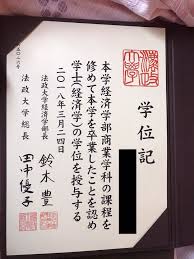 学位記
本学経済学部商業学科の課程を
修めて本学を卒業したことを認め
学士(経済学)の学位を授与する
二〇一八年三月二四日
法政大学経済学部長
鈴木豊
法政大学総長
田中優子